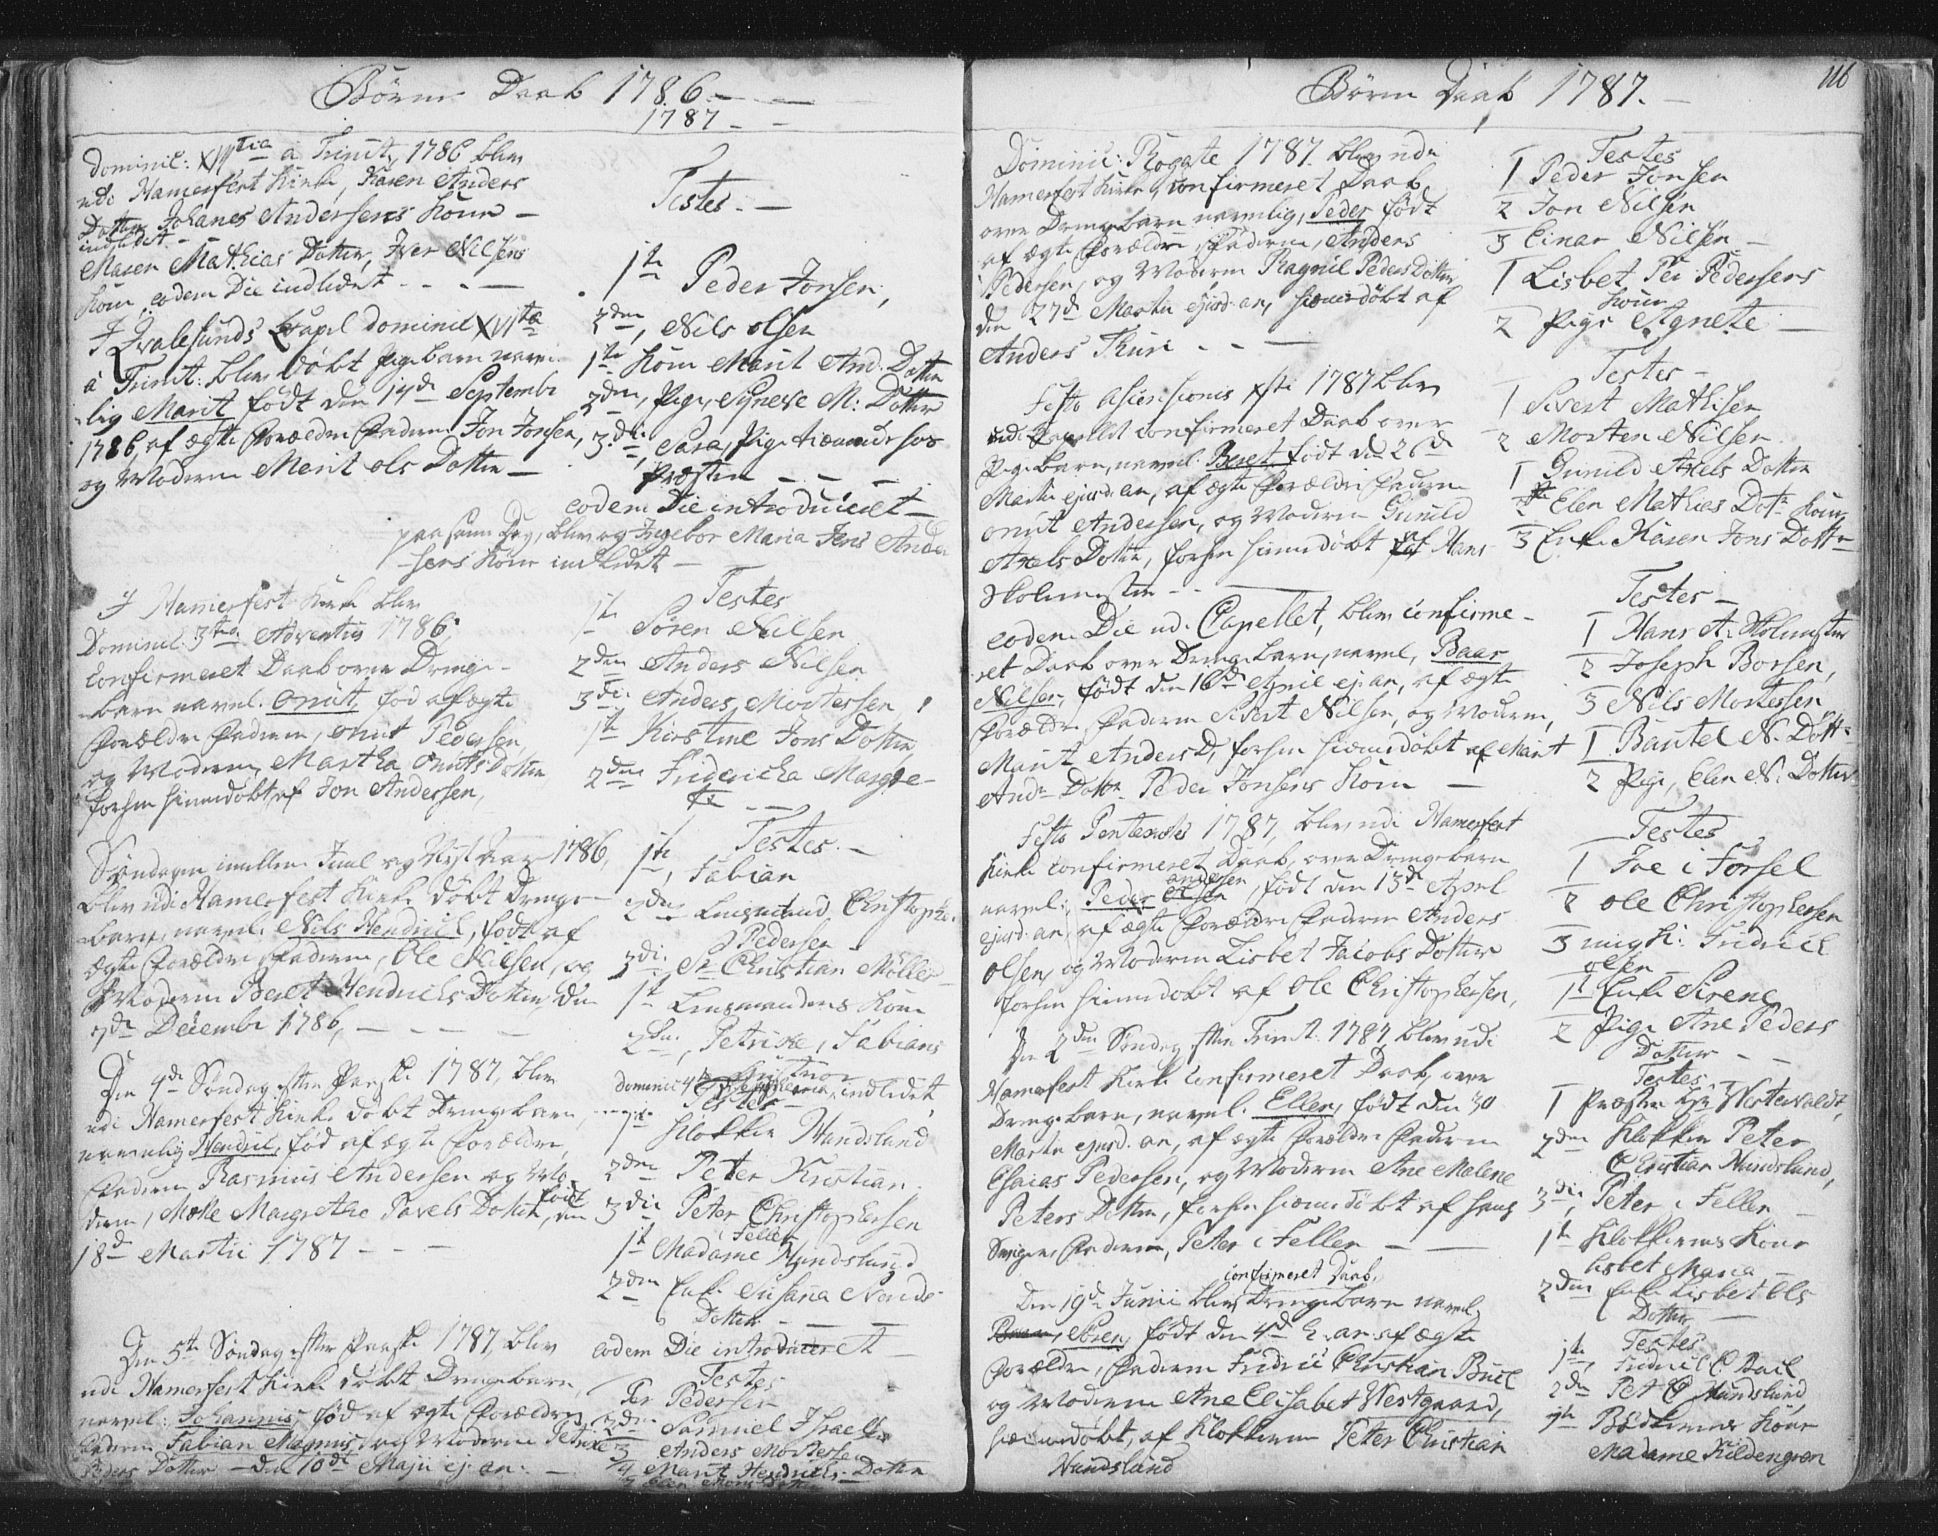 Börne Daab 1786.
1787
Dominic: XVI tia à Trinit, 1786 blev
udi Hamerfest Kirke, Karen Anders
Dotter, Johanes Andersens Kone
indledet
Maren Mathias Dotter, Iver Nilsens
Kone, eodem Die indledet
I Qvalesunds Capel Dominic XVI ta
à Trinit: blev døbt Pigebarn navn-
lig Marit født den 14de Septembr
1786, af ægte Forældre Faderen Jon Jonsen,
og Moderen Merit Ols Dotter
Testes
1te Peder Jonsen,
2den, Nils Olsen
1te Kone Marit And: Dotter
2den, Pige, Synneve M: Dotter
3die, Sara, Pige tienende hos
Præsten
eodem Die introduceret
paa samme Dag, blev og Ingebor Maria Jens Ander
sens Kone indledet
I Hamerfest Kirke blev
Dominic 3tia Adventus 1786,
confirmeret Daab over Drenge-
barn navnl. Knut, fød af ægte
Forældre Faderen, Knut Pedersen,
og Moderen Martha Knuts Dotter,
forhen hiemmedøbt af Jon Andersen,
Testes
1te Sören Nilsen
2den Anders Nilsen
3die Anders Mortessen
1te Kirstine Jons Dotter
2den Fridericha Margre-
te
Søndagen imellem Juul og Nyt Aar 1786,
blev udi Hamerfest Kirke døbt Drenge-
barn, navnl. Nils Hendric, født af
ægte Forældre, Faderen, Ole Nilsen, og
Moderen Beret Hendrichs Dotter, den
7de Decembr 1786,
Testes
1te, Fabian
2den Lensmand Christopher
Pedersen
3die Sr Christian Möller
1te Lensmandens Kone
2den, Petrike, Fabians
Hustrue
Den 4de Søndag efter Paaske 1787, blev
udi Hamerfest Kirke døbt Drengebarn,
navnlig Hendric, fød af ægte Forældre,
Faderen Rasmus Andersen og Mo-
deren, Malle Margrethe Pavels Dotter, født den
18de Martii 1787
indledet,
Testes
1te Klokker Hundslund
2den Peter Kristian
3die Peter Christophersen
i Feller
1te Madame Hundslund
2den Enke Susana
Dotter
Den 5te Søndag efter Paaske 1787, blev
udi Hamerfest Kirke døbt Drengebarn,
navnl: Johannes, fød af ægte Forældre,
Faderen Fabian Magnus, og Moderen Petrike
Peders Dotter den 10de Maji ej. an:
eodem Die introduceret
Testes
Per Pedersen
2den Samuel Israelsen
3 Anders Mortessen
1 Marit Hendrichs Dotter
Börne Daab 1787.
116
Dominic: Rogate 1787 blev udi
Hamerfest Kirke, confirmeret Daab
over Drengebarn navnlig, Peder født
af ægte Forældre, Faderen, Anders
Pedersen, og Moderen Ragnil Peders Dotter
den 27de Martii ejusd. an, hiemmedøbt af
Anders
Testes
1 Peder Jonsen
2 Jon Nilsen
3 Einar Nilsen
1 Lisbet Per Pedersens
Kone
2 Pige Agnete
Festo Ascensionis xsti 1787 blev
udi Capellet confirmeret Daab over
Pigebarn, navnl. Beret født d. 26de
Martii ejusd. an, af ægte Forældre Faderen
Knut Andersen, og Moderen Gunild
Axels Dotter, forhen hiemmedøbt af Hans
Skolemester
Testes
1 Sivert Mathisen
2 Morten Nilsen
1 Gunild Axels Dotter
2 Elen Mathias Dotr Kone
3 Enke Karen Jons Dotter
eodem Die udi Capellet, blev confirme-
ret Daab over Drengebarn, navnl, Baar
Nilsen, født den 16de April ej. an, af ægte
Forældre, Faderen Sivert Nilsen, og Moderen,
Marit Anders D, forhen hiemmedøbt af Marit
Andr Dottr Peder Jonsens Kone
Testes
1 Hans A: Skolmester
2 Joseph Borsen,
3 Nils Mortessen
1 Bantel N. Dottr
2 Pige, Elen N. Dotter
Festo Pentecostes 1787, blev udi Hamerfest
Kirke confirmeret Daab, over Drengebarn
navnl:, Peder Andersen, født den 13de April
ejusd: an, af ægte Forældre Faderen Anders
Olsen, og Moderen Lisbet Jacobs Dotter
forhen hiemmedøbt af Ole Christophersen,
Testes
1 Joe i Forsel
2 Ole Christophersen
3 Ungk: Fridric
Olsen
1te Enke Sirene
2 Pige Ane Peders
Dotter
Den 2den Søndag efter Trinit. 1787, blev udi
Hamerfest Kirke confirmeret Daab, over
Drengebarn, navnl. Ellen, født den 30
Martii ejusd. an, af ægte Forældre Faderen
Esaias Pedersen, og Moderen Ane Malene
Peters Dotter, forhen hiemmedøbt af hans
Faderen, Peter i Feller
Testes
1 Præsten Hr Westervaldt,
2den Klokker Peter
Christian Hundslund,
3die, Peter i Feller
1te Klokkerens Kone
Lisbet Maria
2den Enke Lisbet Ols
Dotter
confirmeret Daab,
Den 19de Junii blev, Drengebarn navnl,
Sören, født den 4de h. an. af ægte
Forældre, Faderen Fridric Christian Buck
og Moderen Ane Elisabet Westgaard,
hiemmedøbt, af Klokkeren Peter Christian
Hundslund
Testes
1te, Fridric C Buck
2den Pet C Hundslund
1te Bødkerens Kone
Madame Kildengren